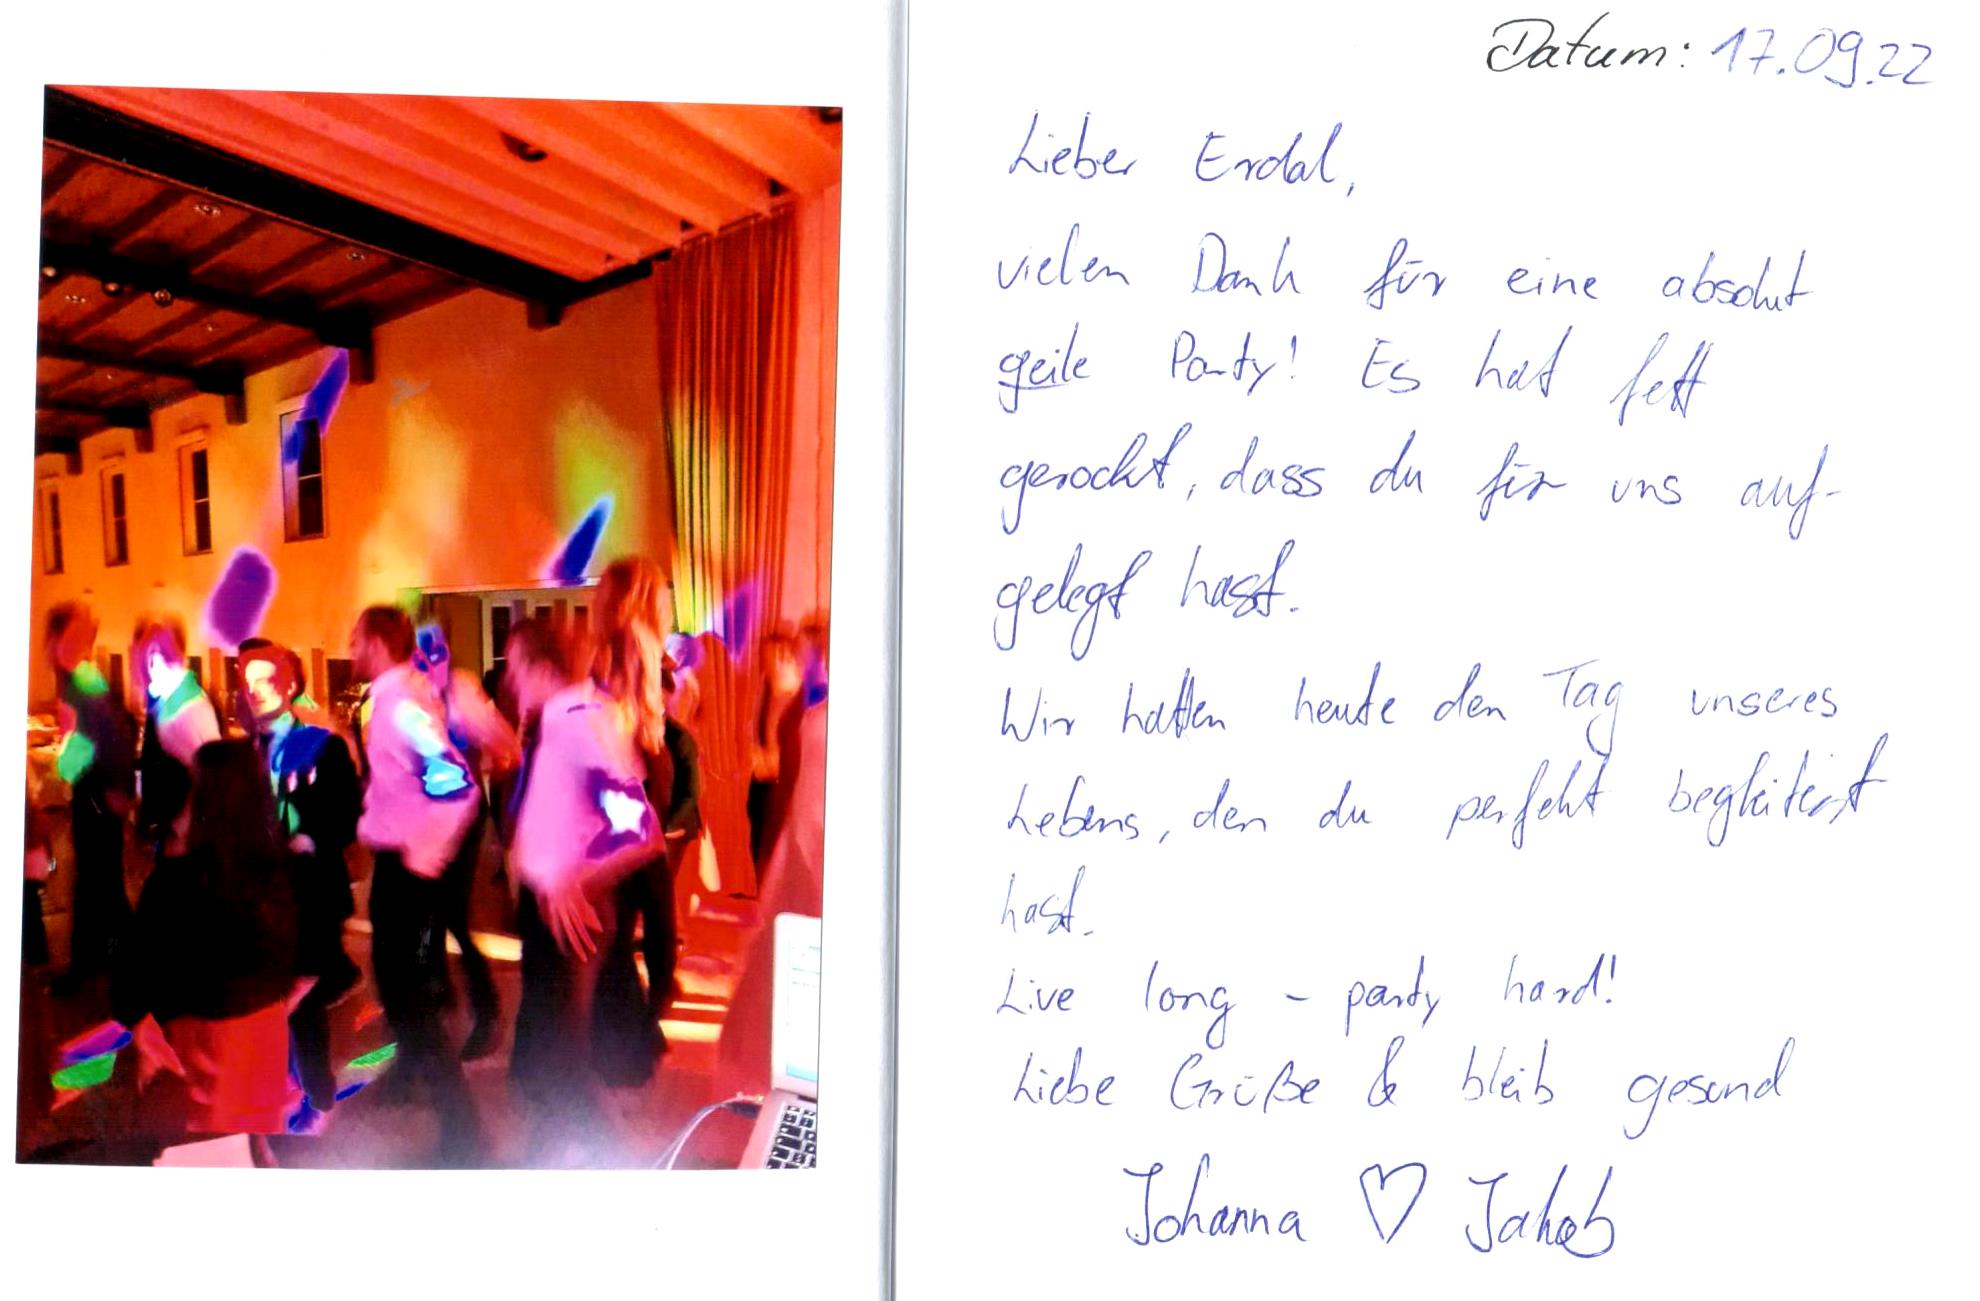 Datum: 17.09.22
Lieber Erdal,
vielen Dank für eine absolut
geile Party! Es hat fett
gerockt, dass du für uns auf-
gelegt hast.
Wir hatten heute den Tag unseres
Lebens, den du perfekt begleitest
hast.
Live long - party hard!
Liebe Grüße & bleib gesund
Johanna ♡ Jakob